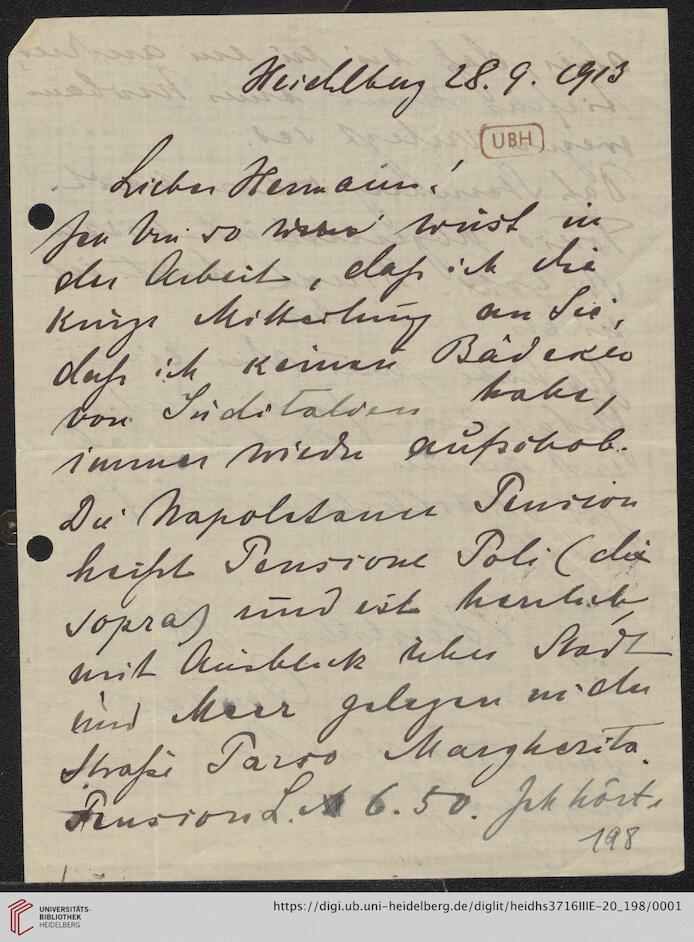 Heidelberg 28. 9. 1913
UBH
Lieber Hermann!
Ich bin so wüst in
der Arbeit, daß ich die
kurze Mitteilung an Sie,
daß ich keinen Bädeker
von Süditalien habe,
immer wieder aufschob.
Die Napolitaner Pension
heißt Pensione Poli (die
sopra) und ist herrlich,
mit Ausblick über Stadt
und Meer gelegen in der
Straße Parco Margherita.
Pension L. 6.50. Ich hörte
198
UNIVERSITÄTS-
BIBLIOTHEK
HEIDELBERG
https://digi.ub.uni-heidelberg.de/diglit/heidhs3716IIIE-20_198/0001